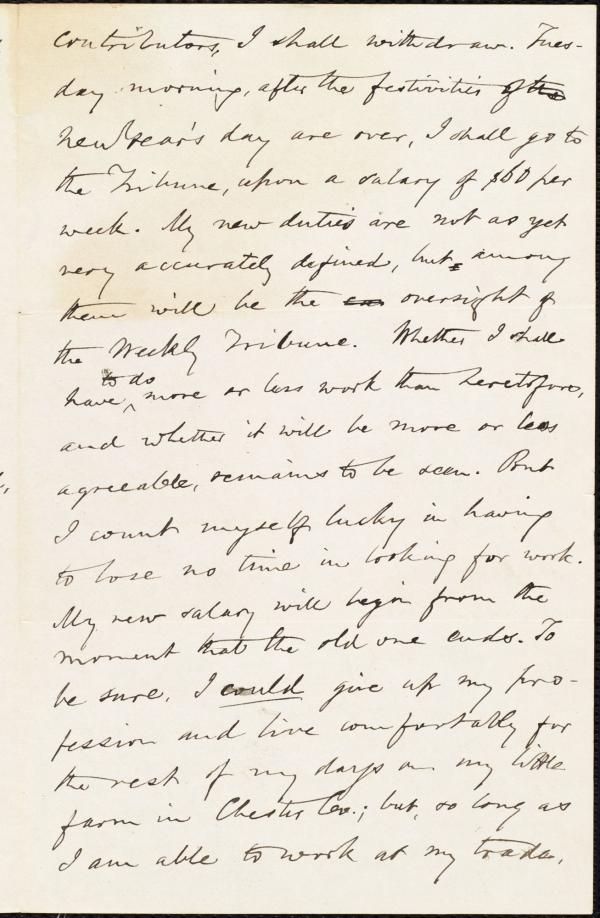 contributors, I shall withdraw. Tues-
day morning, after the festivities of the
New Year's day are over, I shall go to
the Tribune, upon a salary of $60 per
week. My new duties are not as yet
very accurately defined, but, among
them will be the oversight of
the Weekly Tribune. Whether I shall
to do
have, more or less work than heretofore,
and whether it will be more or less
agreeable, remains to be seen. But
I count myself lucky in having
to lose no time in looking for work.
My new salary will begin from the
moment that the old one ends. To
be sure, I could give up my pro-
fession and live comfortably for
the rest of my days on my little
farm in Chester Co.; but, so long as
I am able to work at my trade,